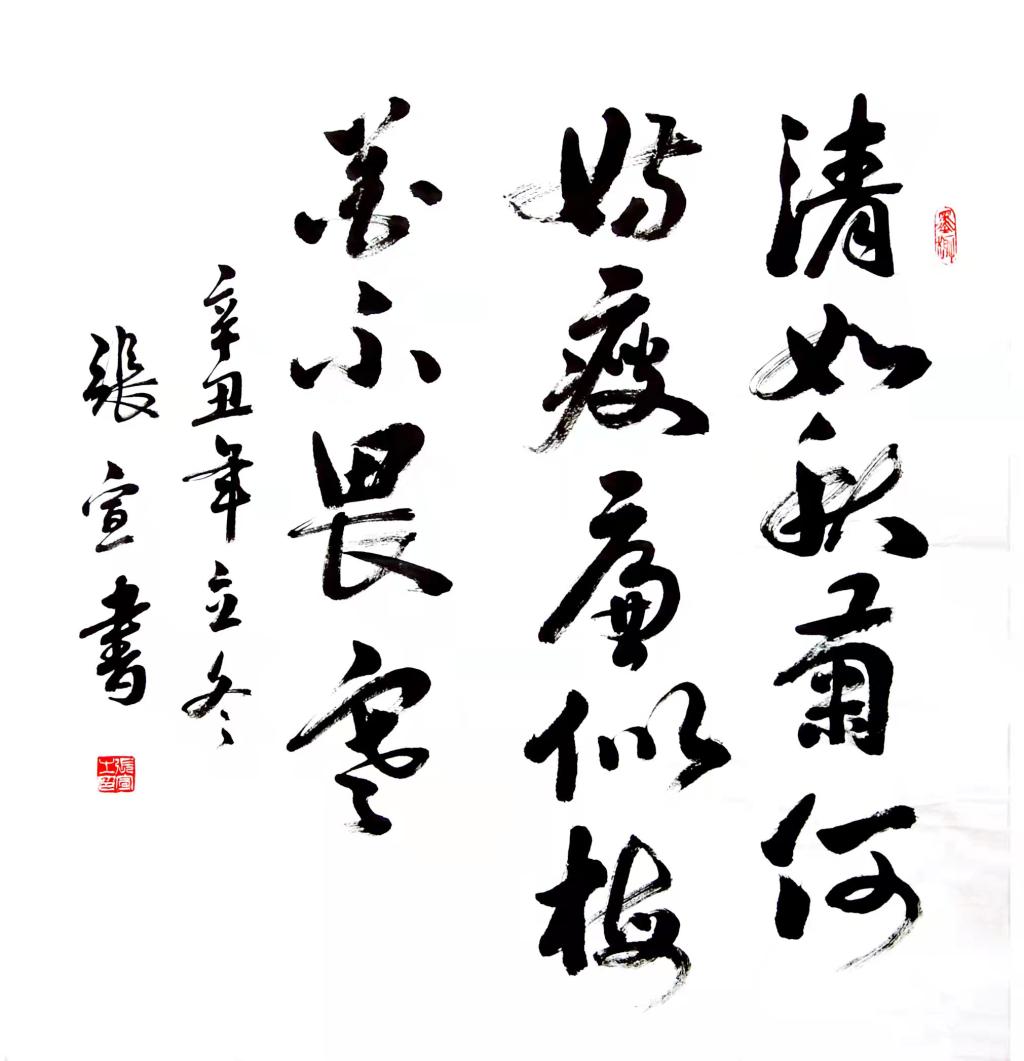 清如秋菊何
妨瘦廉似梅
花不畏寒
辛丑年立冬
張宣書